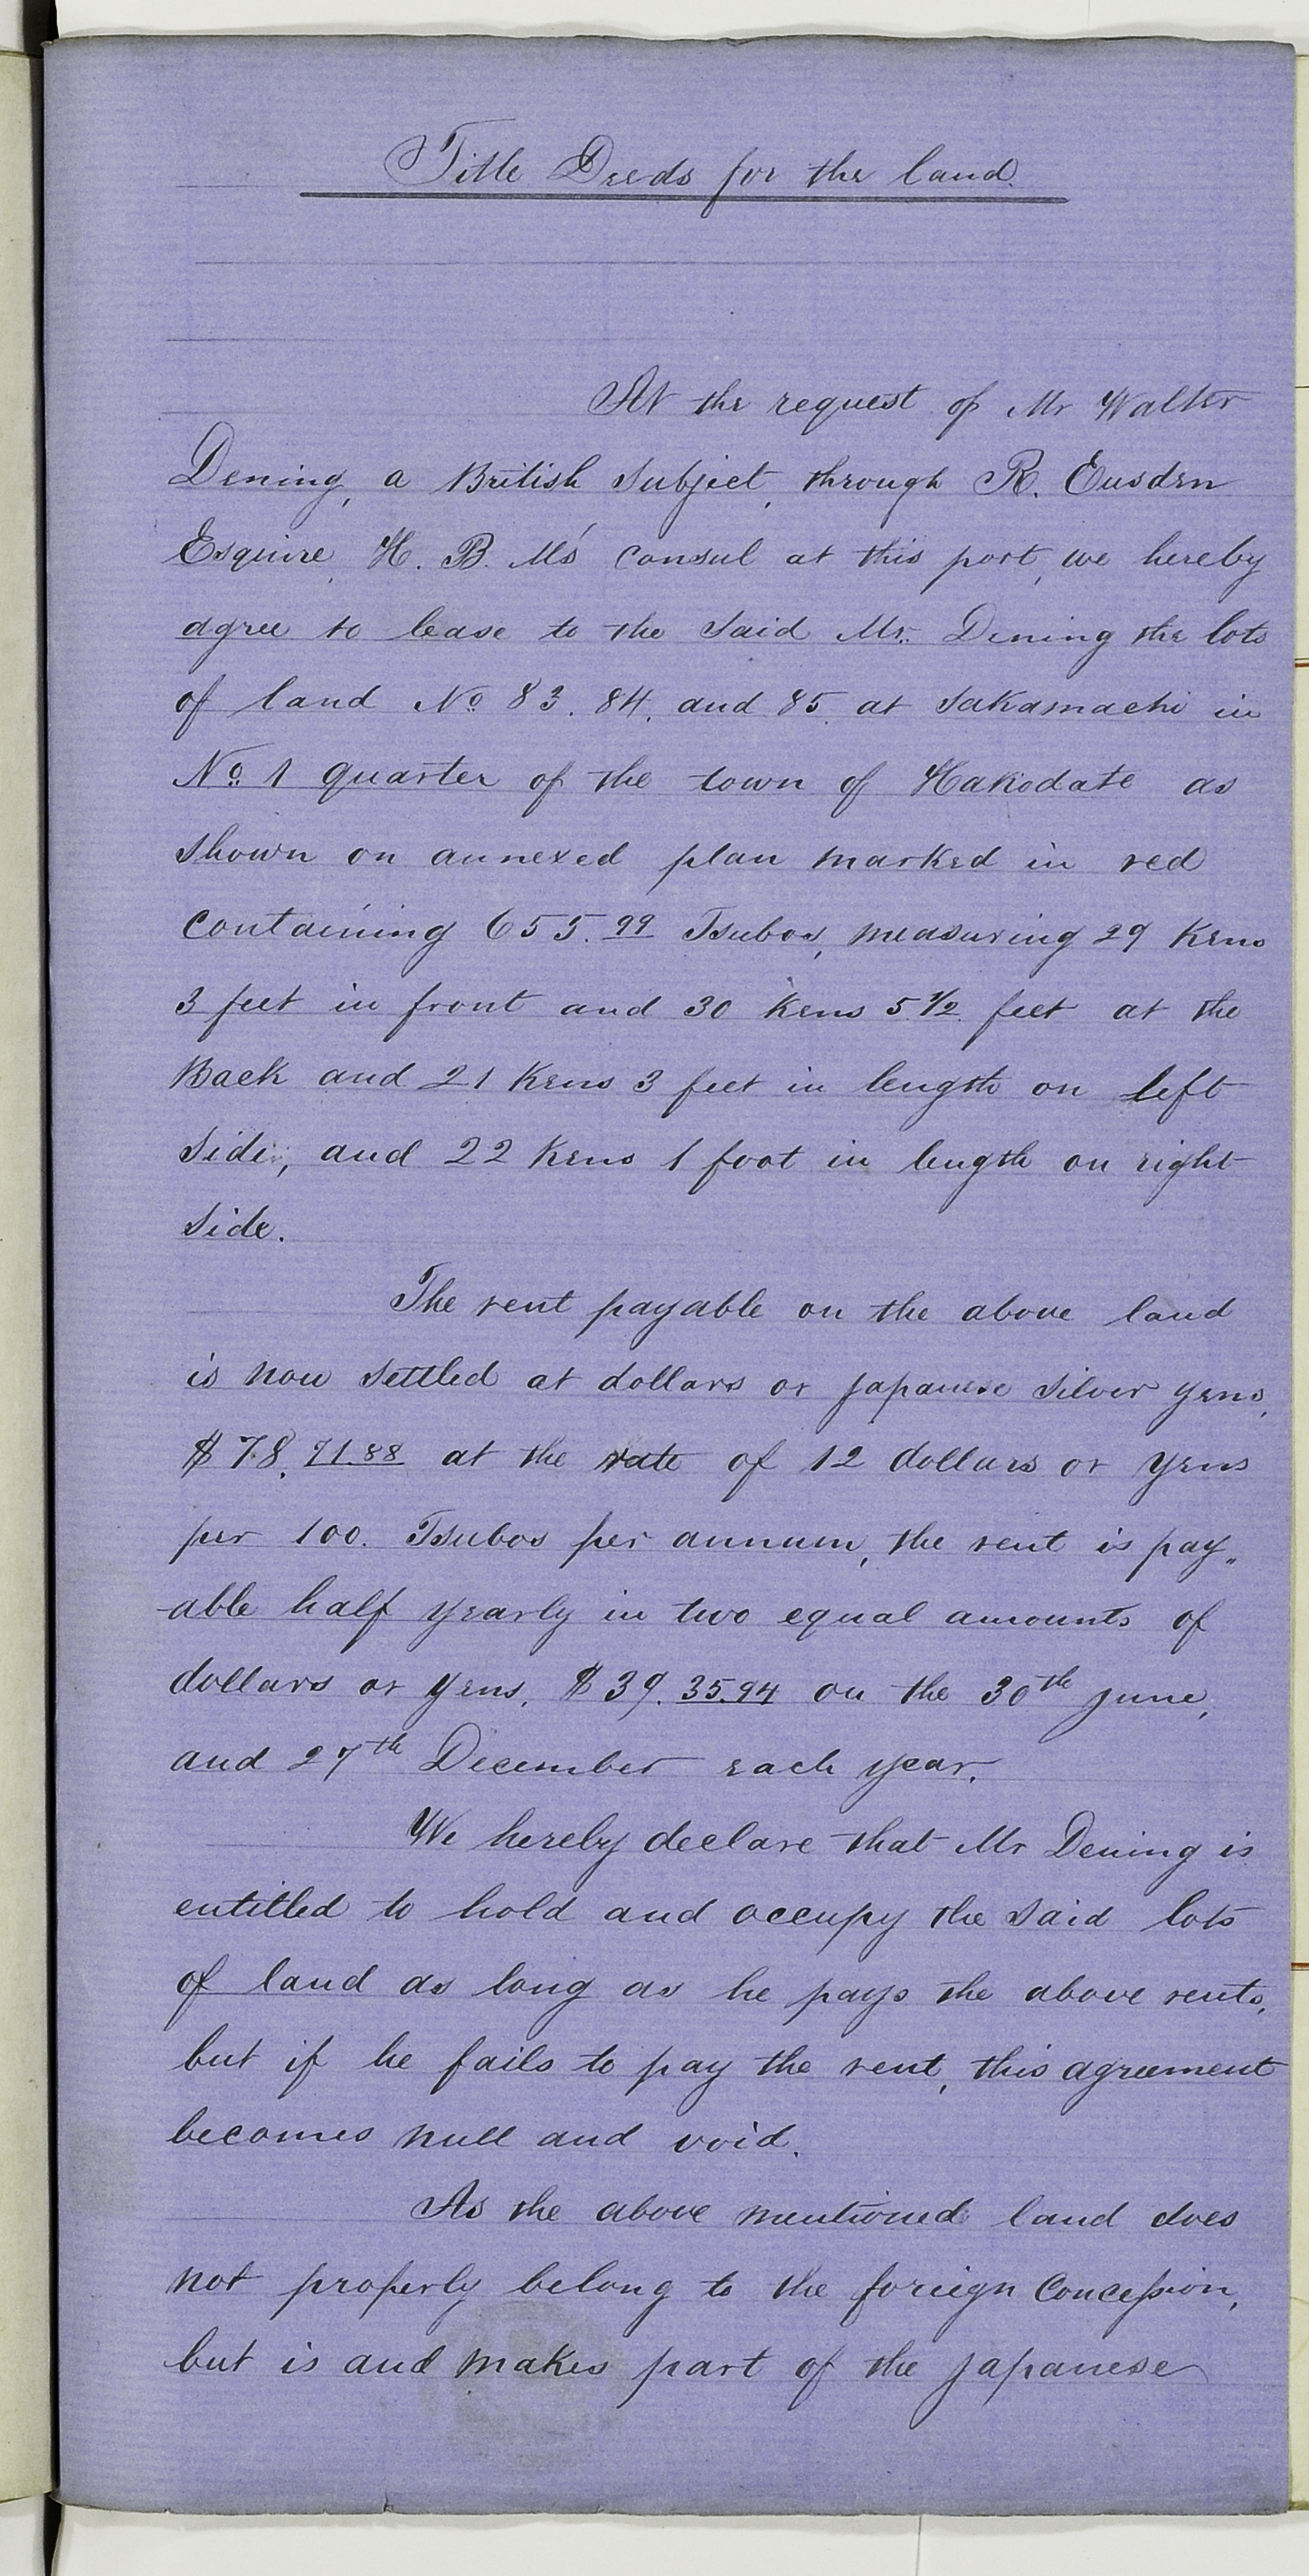 Title Deeds for the land.
At the request of Mr Walter
Dening, a British Subject, through R. Eusden
Esquire, H. B. M's consul at this port, we hereby
agree to lease to the said Mr. Dening the lots
of land No 83. 84. and 85. at Sakamachi in
No 1 quarter of the town of Hakodate as
shown on annexed plan marked in red
containing 655.99 Tsubos, measuring 29 Kens
3 feet in front and 30 Kens 5.1/2 feet at the
Back and 21 Kens 3 feet in length on left
side, and 22 Kens 1 foot in length on right
side.
The rent payable on the above land
is now settled at dollars or japanese silver yens,
$ 78.71.88 at the rate of 12 dollars or yens
per 100. Tsubos per annum, the rent is pay„
-able half yearly in two equal amounts of
dollars or yens. $ 39.35.94 on the 30th june,
and 27th December each year.
We hereby declare that Mr Dening is
entitled to hold and occupy the said lots
of land as long as he pays the above rents,
but if he fails to pay the rent, this agreement
becomes null and void.
As the above mentioned land does
not properly belong to the foreign Concession,
but is and makes part of the japanese